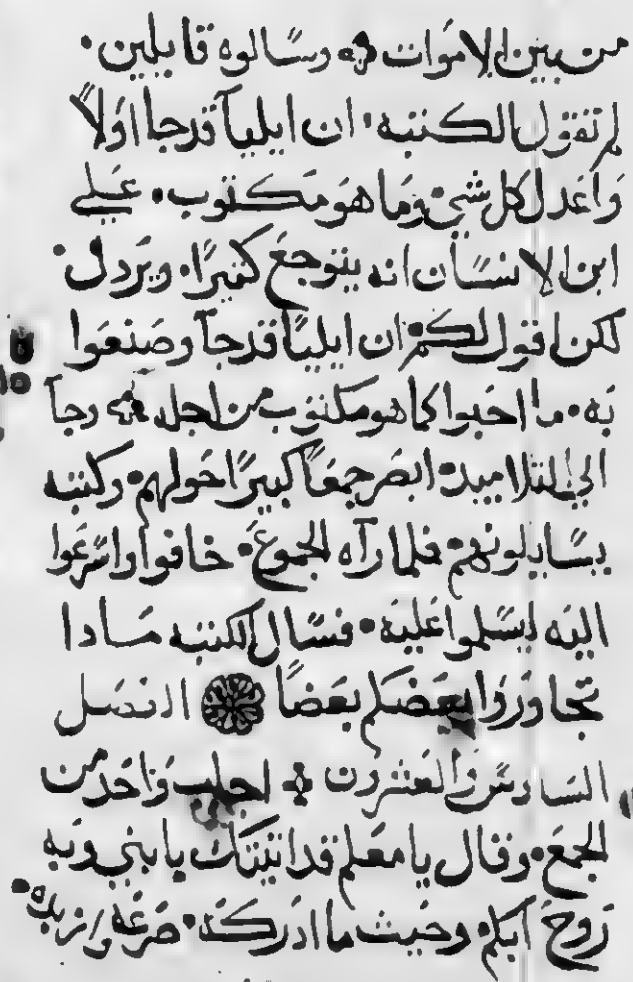 من بين الاموات ܀ وسالوه قايلين·
لم تقول الكتبه· ان ايليا قد جا اولاً
واعدل كل شي· وما هو مكتوب· علي
ابن الانسان انه يتوجع كثيرًا· ويردل·
لكن اقول لكم· ان ايليا قد جا وصنعوا
به· ما احبوا كما هو مكتوب من اجله ܀ وجا
الي التلاميد· ابصر جمعًا كبيرًا حولهم· وكتبه
يسايلونهم· فلما رآه الجموع· خافوا واسرعوا
اليه ليسلموا عليه· فسال الكتبه مادا
تجاوروا بعضكم بعضًا الفصل
السادس والعشرون ܀ اجاب واحد من
الجمع· وقال يا معلم قد اتيتك يا بني وبه
روح ابكم· وحيث ما ادركه· صرعه وازبده·